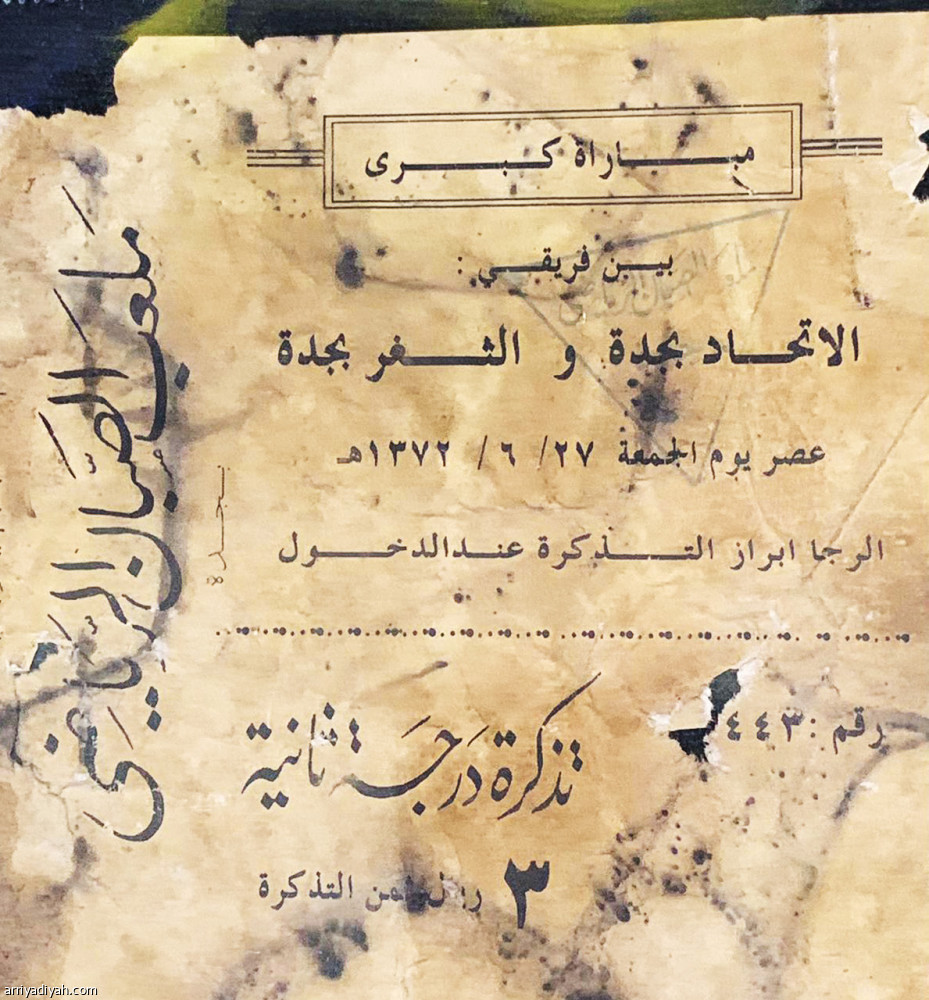 مباراة كبرى
بين فريقي :
الاتحاد بجدة و الثغر بجدة
عصر يوم الجمعة ٢٧/ ٦ / ١٣٧٢هـ
الرجا ابراز التذكرة عند الدخول
رقم : ٤٤٣
تذكرة درجة ثانية
٣ ريال ثمن التذكرة
ملعب الصبان الرياضي
بجدة
arriyadiyah.com